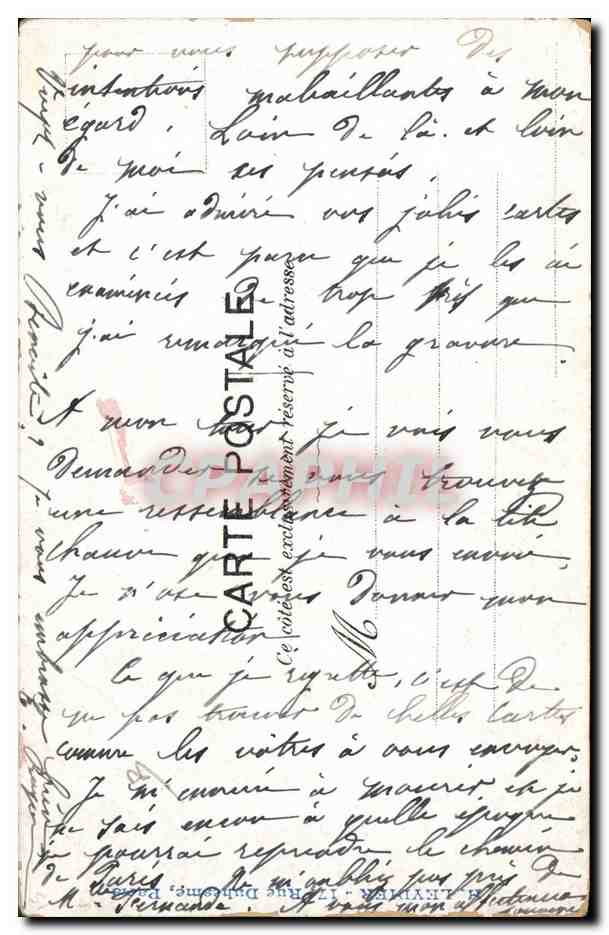 pour vous supposer des
intentions malveillantes à mon
égard. Loin de là. et loin
de moi ses pensés.
J'ai admiré vos jolies cartes
et c'est parce que je les ai
examinées de trop près que
j'ai remarqué la gravure.
A mon tour je vais vous
demander si vous trouvez
une ressemblance à la tête
chauve que je vous envoie.
Je n'ose vous donner mon
appréciation
Ce que je regrette, c'est de
ne pas trouver de belles cartes
comme les vôtres à vous envoyer.
Je m'ennuie à mourir et je
ne sais encore à quelle époque
je pourrai reprendre le chemin
de Paris. Ne m'oubliez pas près de
M Fernande. A vous mon affectueux
souvenir
vous
je vous
CARTE POSTALE
Ce côté est exclusivement réservé à l'adresse
M
CPAPHIL
LEVINER - 17 Rue Paris